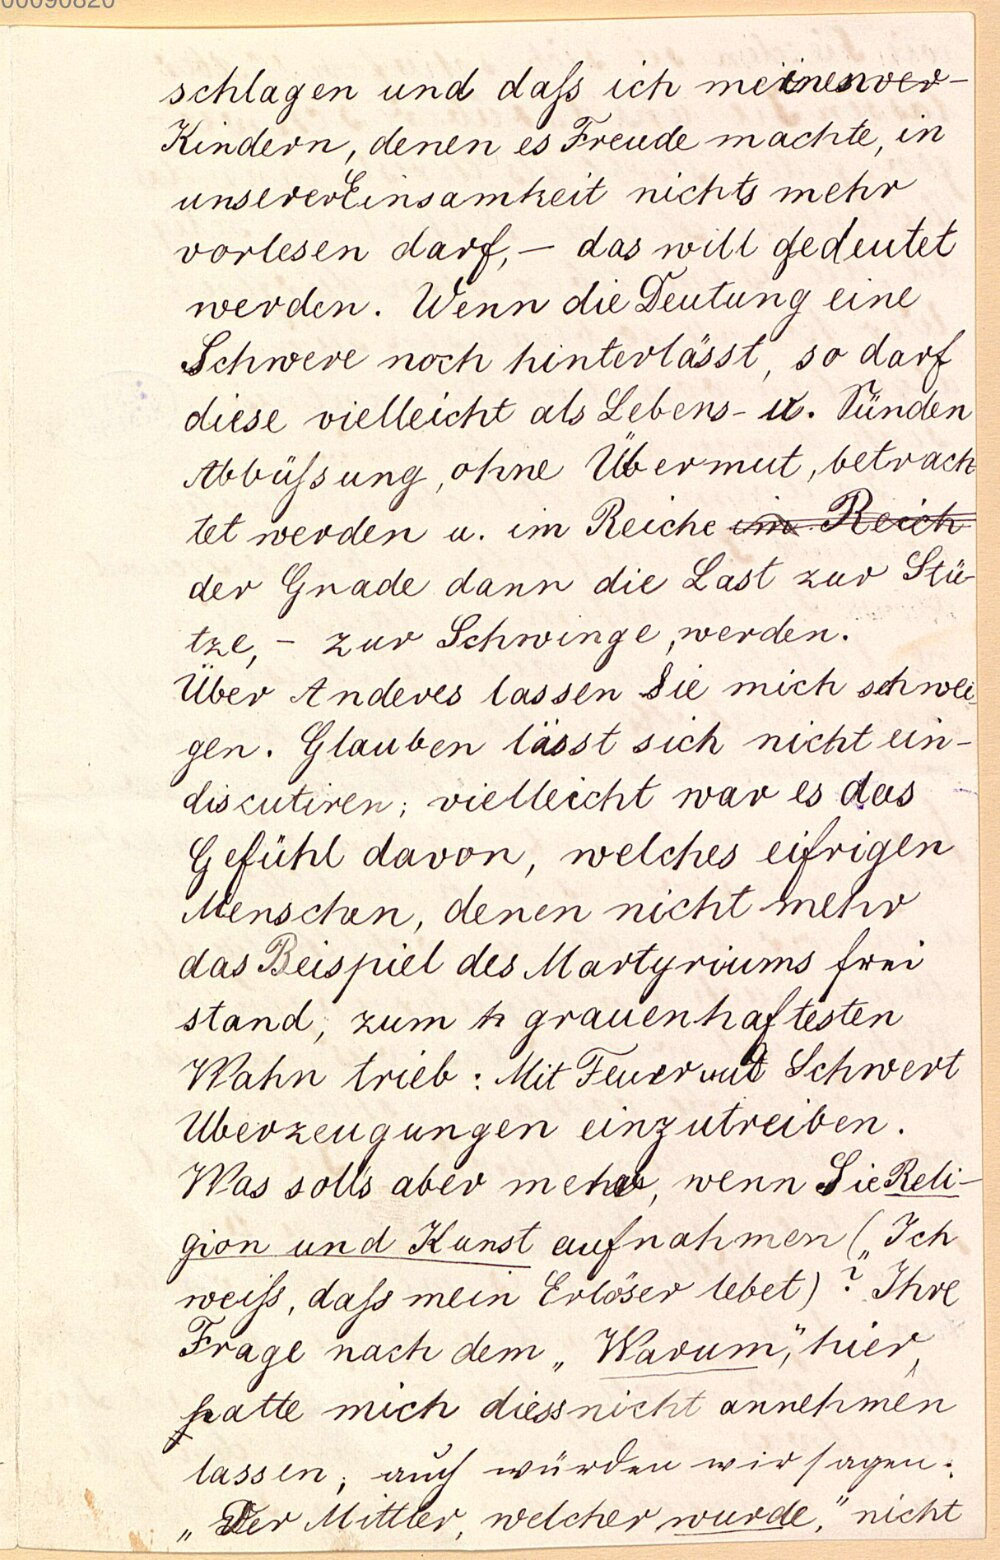 00090820
schlagen und daſs ich meinen ver-
Kindern, denen es Freude machte, in
unserer Einsamkeit nichts mehr
vorlesen darf, – das will gedeutet
werden. Wenn die Deutung eine
Schwere noch hinterlässt, so darf
diese vielleicht als Lebens- u. Sünden
Abbüſsung, ohne Übermut, betrach
tet werden u. im Reiche im Reich
der Gnade dann die Last zur Stü-
tze, – zur Schwinge, werden.
Über Anderes lassen Sie mich schwei
gen. Glauben lässt sich nicht ein-
discutiren; vielleicht war es das
Gefühl davon, welches eifrigen
Menschen, denen nicht mehr
das Beispiel des Martyriums frei
stand, zum h grauenhaftesten
Wahn trieb: Mit Feuer und Schwert
Uberzeugungen einzutreiben.
Was soll's aber mehr, wenn Sie Reli-
gion und Kunst aufnahmen („Ich
weiſs, daſs mein Erlöser lebet)? Ihre
Frage nach dem „Warum", hier,
hatte mich diess nicht annehmen
lassen; auch würden wir sagen:
„Der Mittler, welcher wurde," nicht